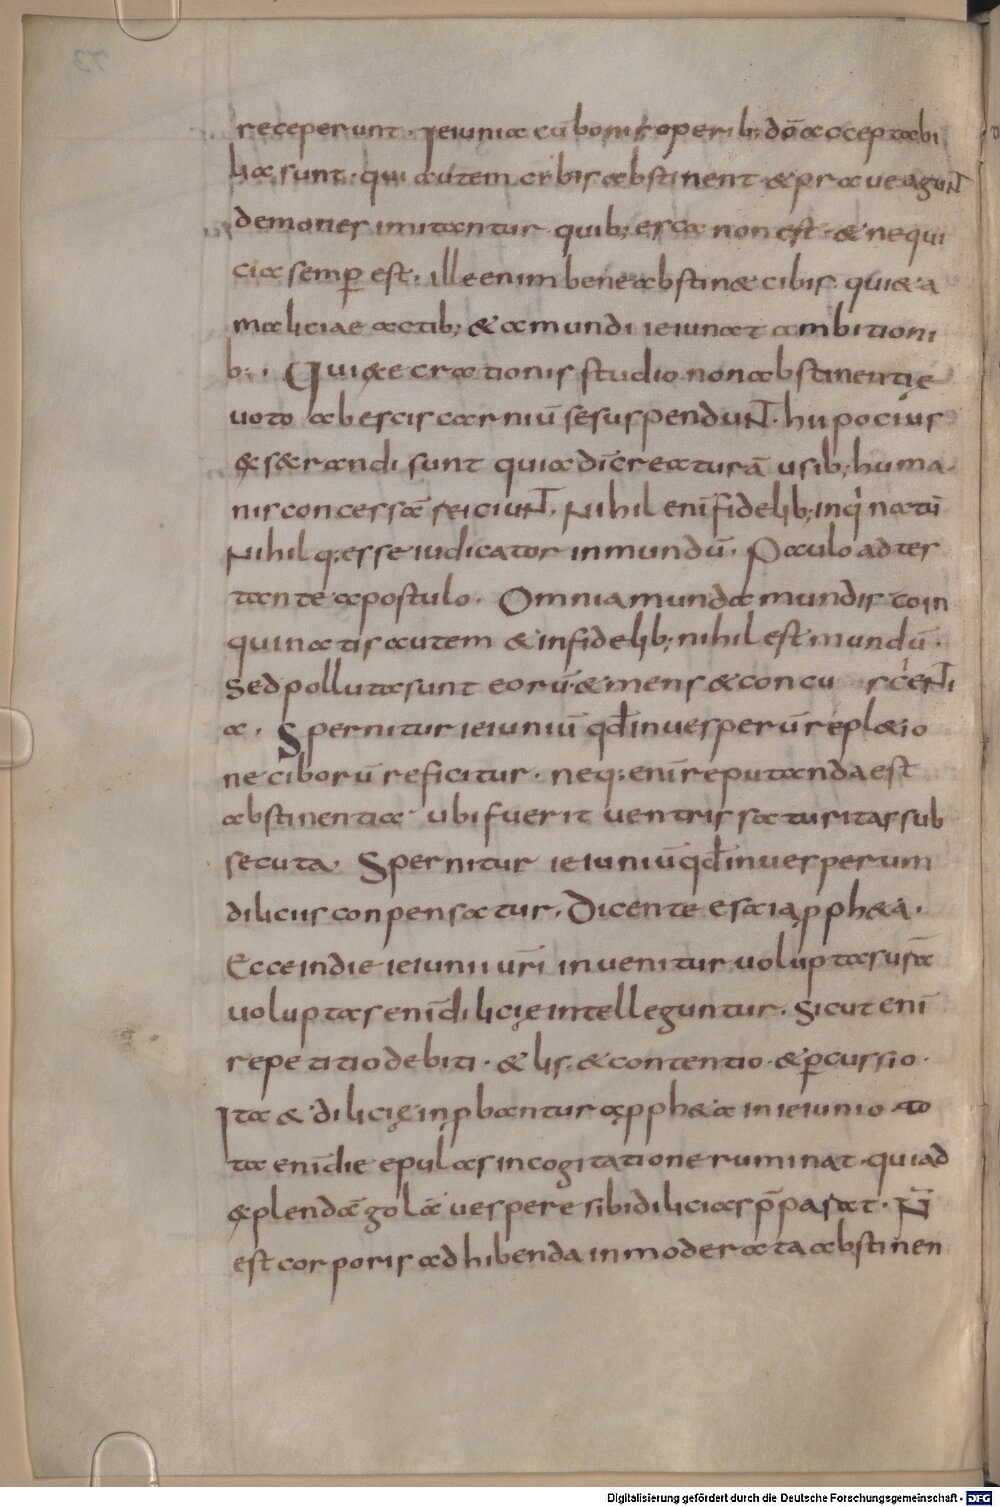 receperunt. Ieiunia cū bonis operib; dō acceptabi
lia sunt. qui autem cibis abstinent. & praue aguNT
demones imitantur. quib; esca non est. & nequi
cia semp̱ est. ille enim bene abstin& cibis. qui & a
maliciae actib; & a mundi ieiunat ambitioni
b;. Qui ęecrationis studio non abstinentię
uoto ab escis carniū se suspenduNT. hupocius
ęsęrandi sunt quia dīcreaturā usib; huma
nis concessā reiciuNT. Nihil enī fidelib; inq̇natū
Nihil q; esse iudicator inmundū. Paulo adtes
tante apostulo. Omnia munda mundis coin
quinatis autem & infidelib; nihil est mundū.
Sed polluta sunt eorū. & mens & concu sceNTi
a. Spernitur ieiuniū qđ in uesperū repl&io
ne ciborū reficitur. neq; enī reputanda est
abstinentia ubi fuerit uentris saturitas sub
secuta. Spernitur ieiuniū qđ in uesperum
diliciis conpensatur. Dicente esaia pph&a.
Ecce in die ieiunii urī inuenitur uoluptas usā
uoluptas enī dilicię intelleguntur. Sicut enī
repetitio debiti. & lis. & contentio. & p̱cussio.
Ita & dilicię inpbantur a pph&a in ieiunio. to
ta enī die epulas in cogitatione ruminat. qui ad
ęplendā golā uespere sibi dilicias p̄parat. N̄
est corporis adhibenda inmoderata abstinen